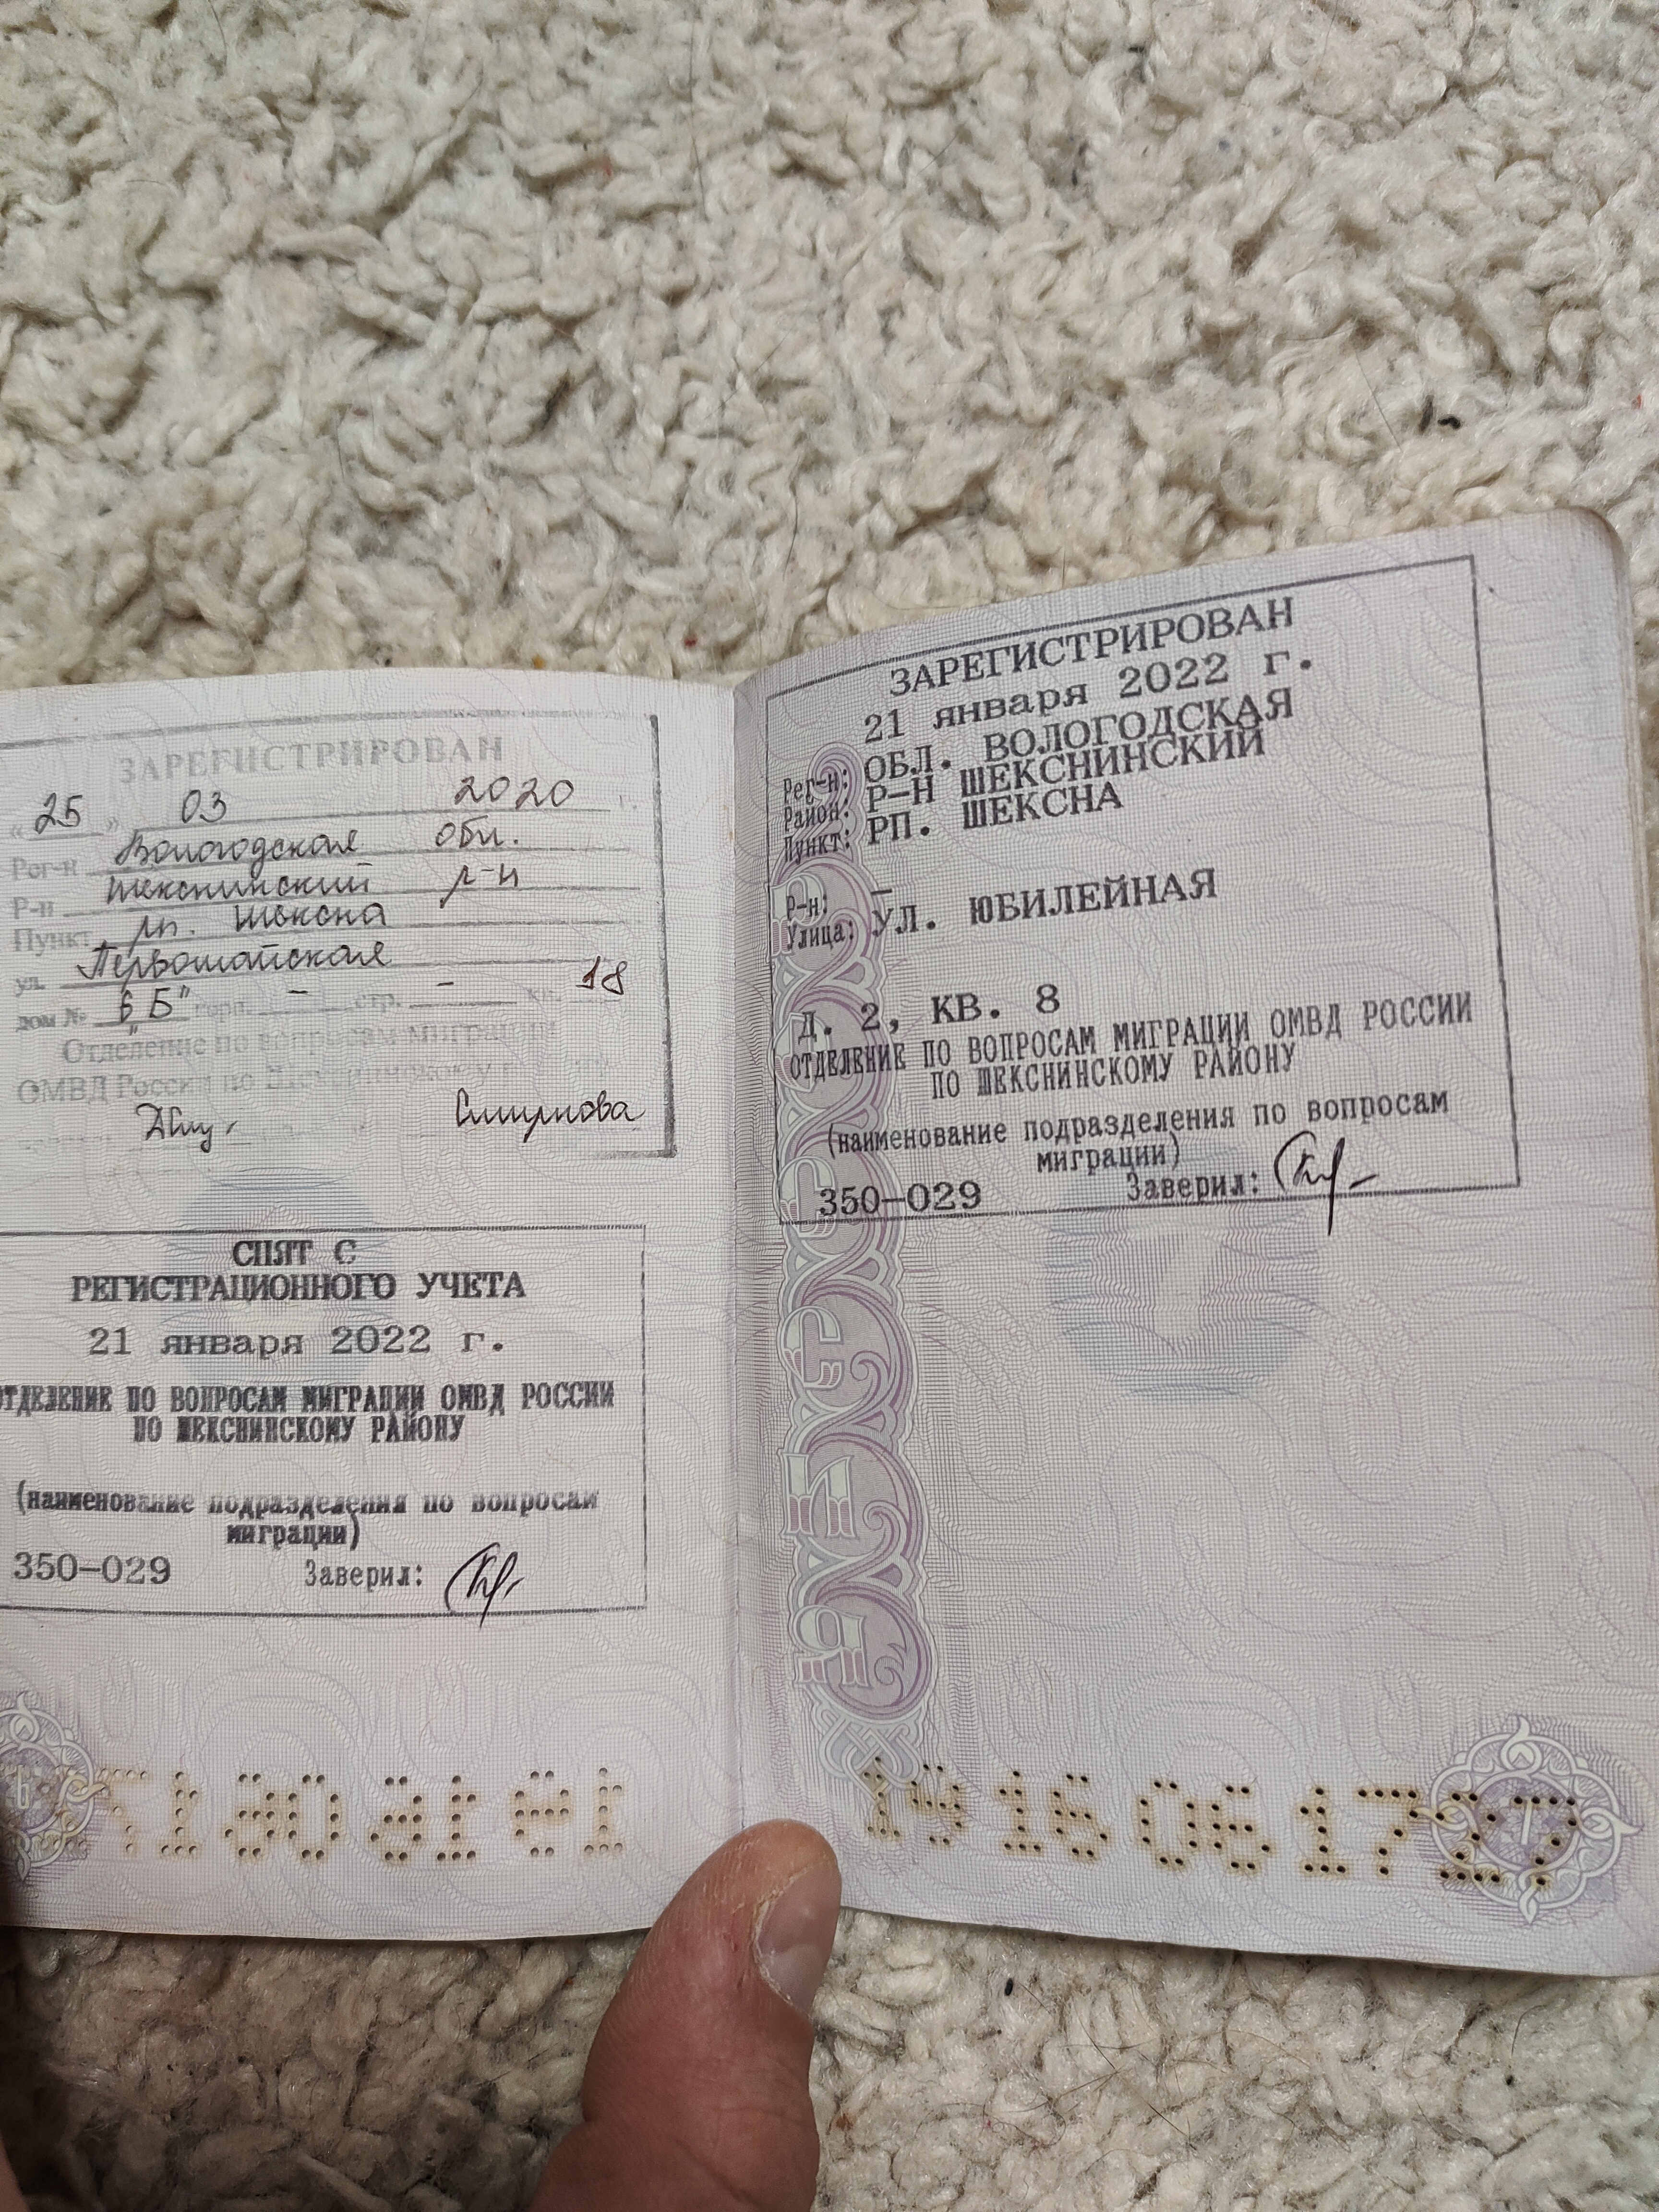 ЗАРЕГИСТРИРОВАН
"25" 03 2020
Рег-н Вологодская обл.
Р-н Шекснинский р-н
Пункт рп. Шексна
ул. Первомайская
дом № 6 "Б" корп. - стр. - кв. 18
Отделение по вопросам миграции
ОМВД России по Шекснинскому
Смирнова
СНЯТ С
РЕГИСТРАЦИОННОГО УЧЕТА
21 января 2022 г.
ОТДЕЛЕНИЕ ПО ВОПРОСАМ МИГРАЦИИ ОМВД РОССИИ
ПО ШЕКСНИНСКОМУ РАЙОНУ
(наименование подразделения по вопросам
миграции)
350-029 Заверил:
6
ЗАРЕГИСТРИРОВАН
21 января 2022 г.
Рег-н: ОБЛ. ВОЛОГОДСКАЯ
Район: Р-Н ШЕКСНИНСКИЙ
Пункт: РП. ШЕКСНА
Р-н: -
Улица: УЛ. ЮБИЛЕЙНАЯ
Д. 2, КВ. 8
ОТДЕЛЕНИЕ ПО ВОПРОСАМ МИГРАЦИИ ОМВД РОССИИ
ПО ШЕКСНИНСКОМУ РАЙОНУ
(наименование подразделения по вопросам
миграции)
350-029 Заверил:
РОССИЯ
19 16 061727
7